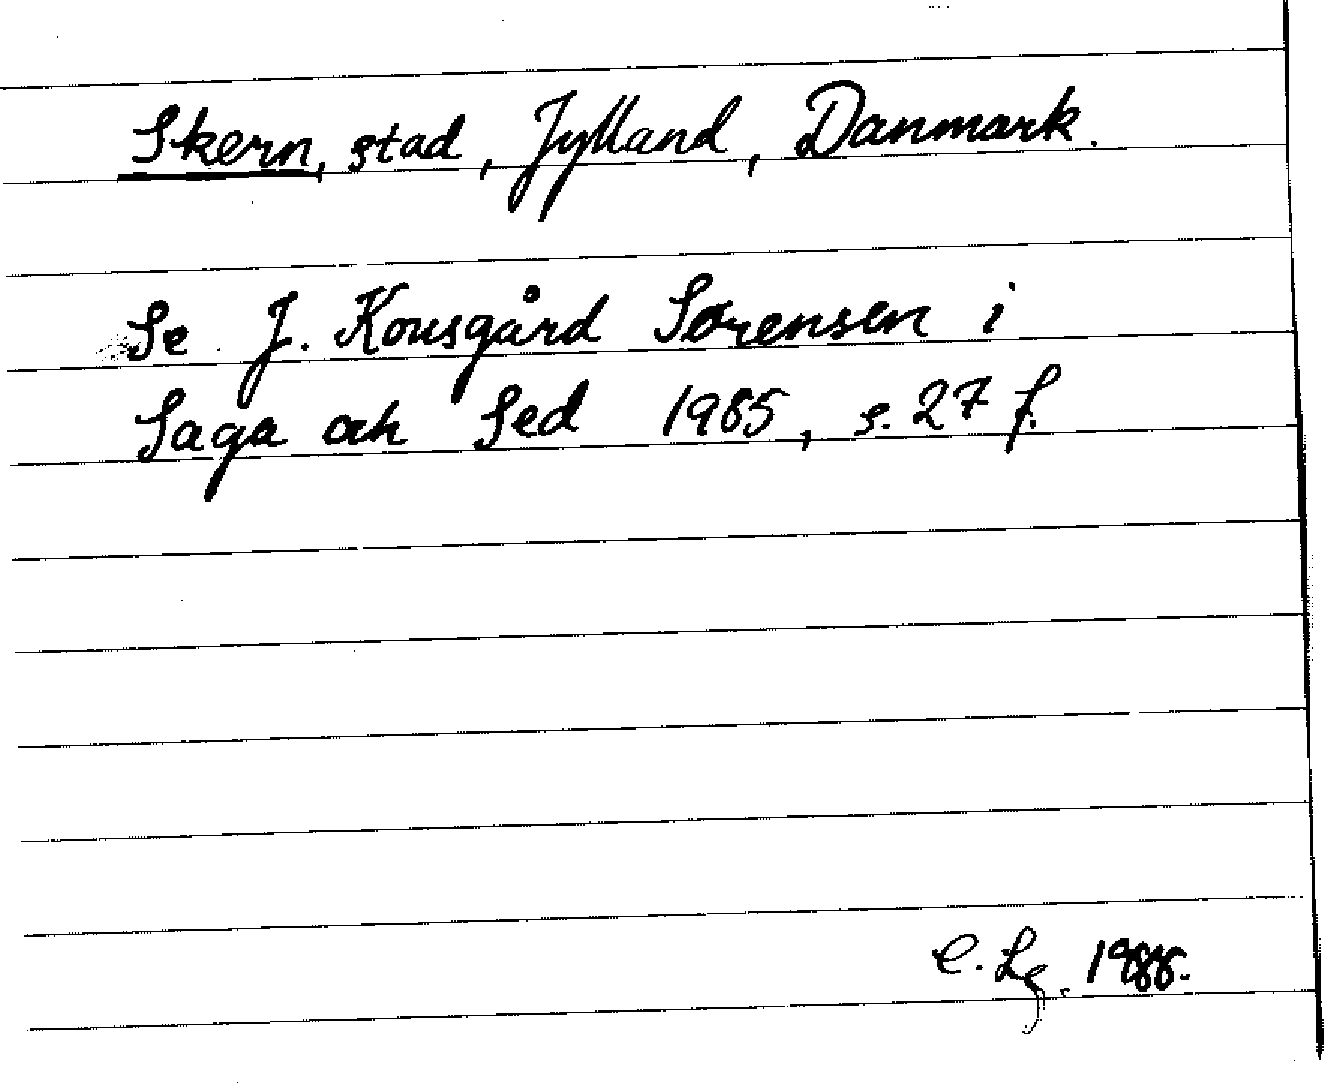 Skern, stad, Jylland, Danmark.
Se J. Kousgård Sørensen i
Saga och Sed 1985, s. 27 f.
C. Lg. 1988.